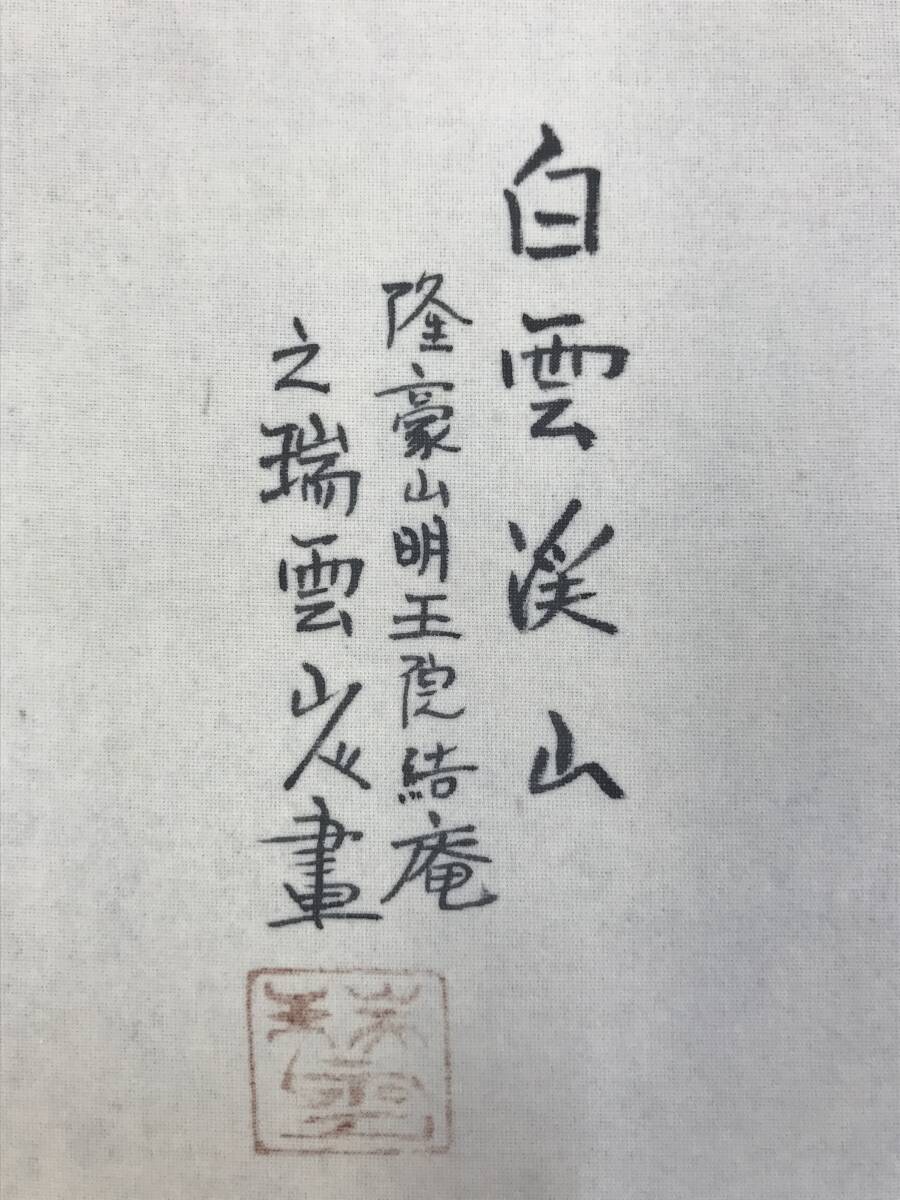 白雲渓山
隆豪山明王院結庵
之瑞雲山人畫
瑞雲